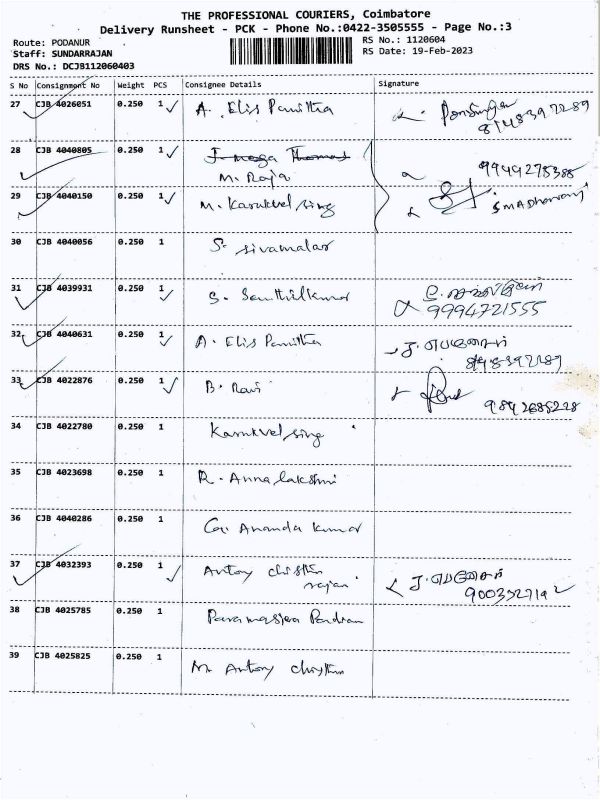 THE PROFESSIONAL COURIERS, Coimbatore
Delivery Runsheet - PCK - Phone No.:0422-3505555 - Page No.:3
Route: PODANUR
Staff: SUNDARRAJAN
DRS No.: DCJB112060403
RS No.: 1120604
RS Date: 19-Feb-2023
S No Consignment No Weight PCS Consignee Details Signature
27 CJB 4026051 0.250 1 A. Elis Pavithra
28 CJB 4040805 0.250 1 Thomas 9944275388
M. Raja
29 CJB 4040150 0.250 1 M. Karukvel sing
30 CJB 4040056 0.250 1 S. sivamalar
31 CJB 4039931 0.250 1 S. Senthilkumar
9994721555
32 CJB 4040631 0.250 1 A. Elis Pavithra
33 CJB 4022876 0.250 1 B. Ravi
9842685228
34 CJB 4022780 0.250 1 Karukvel sing
35 CJB 4023698 0.250 1 R. Annalakshmi
36 CJB 4040286 0.250 1 G. Ananda kumar
37 CJB 4032393 0.250 1 Antony
rajan
38 CJB 4025785 0.250 1
39 CJB 4025825 0.250 1 M. Antony